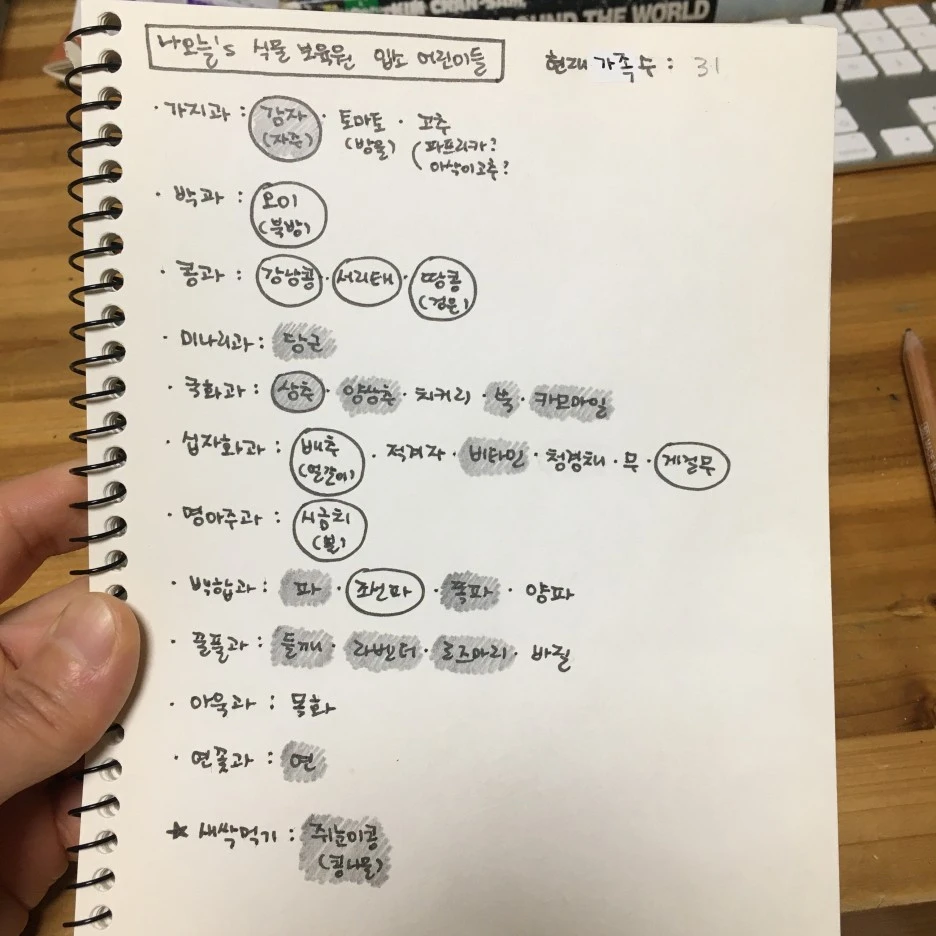 AROUND THE WORLD
나오늘's 식물 보육원 입소 어린이들
현재 가족수 : 31
· 가지과 : 감자 · 토마토 · 고추
(자주) (방울) (파프리카?
아삭이고추?
· 박과 : 오이
(북방)
· 콩과 : 강낭콩 · 서리태 · 땅콩
(검은)
· 미나리과 : 당근
· 국화과 : 상추 · 양상추 · 치커리 · 쑥 · 카모마일
· 십자화과 : 배추 · 적겨자 · 비타민 · 청경채 · 무 · 게걸무
(얼갈이)
· 명아주과 : 시금치
(뿔)
· 백합과 : 파 · 조선파 · 쪽파 · 양파
· 꿀풀과 : 들깨 · 라벤더 · 로즈마리 · 바질
· 아욱과 : 목화
· 연꽃과 : 연
★ 새싹먹기 : 쥐눈이콩
(콩나물)